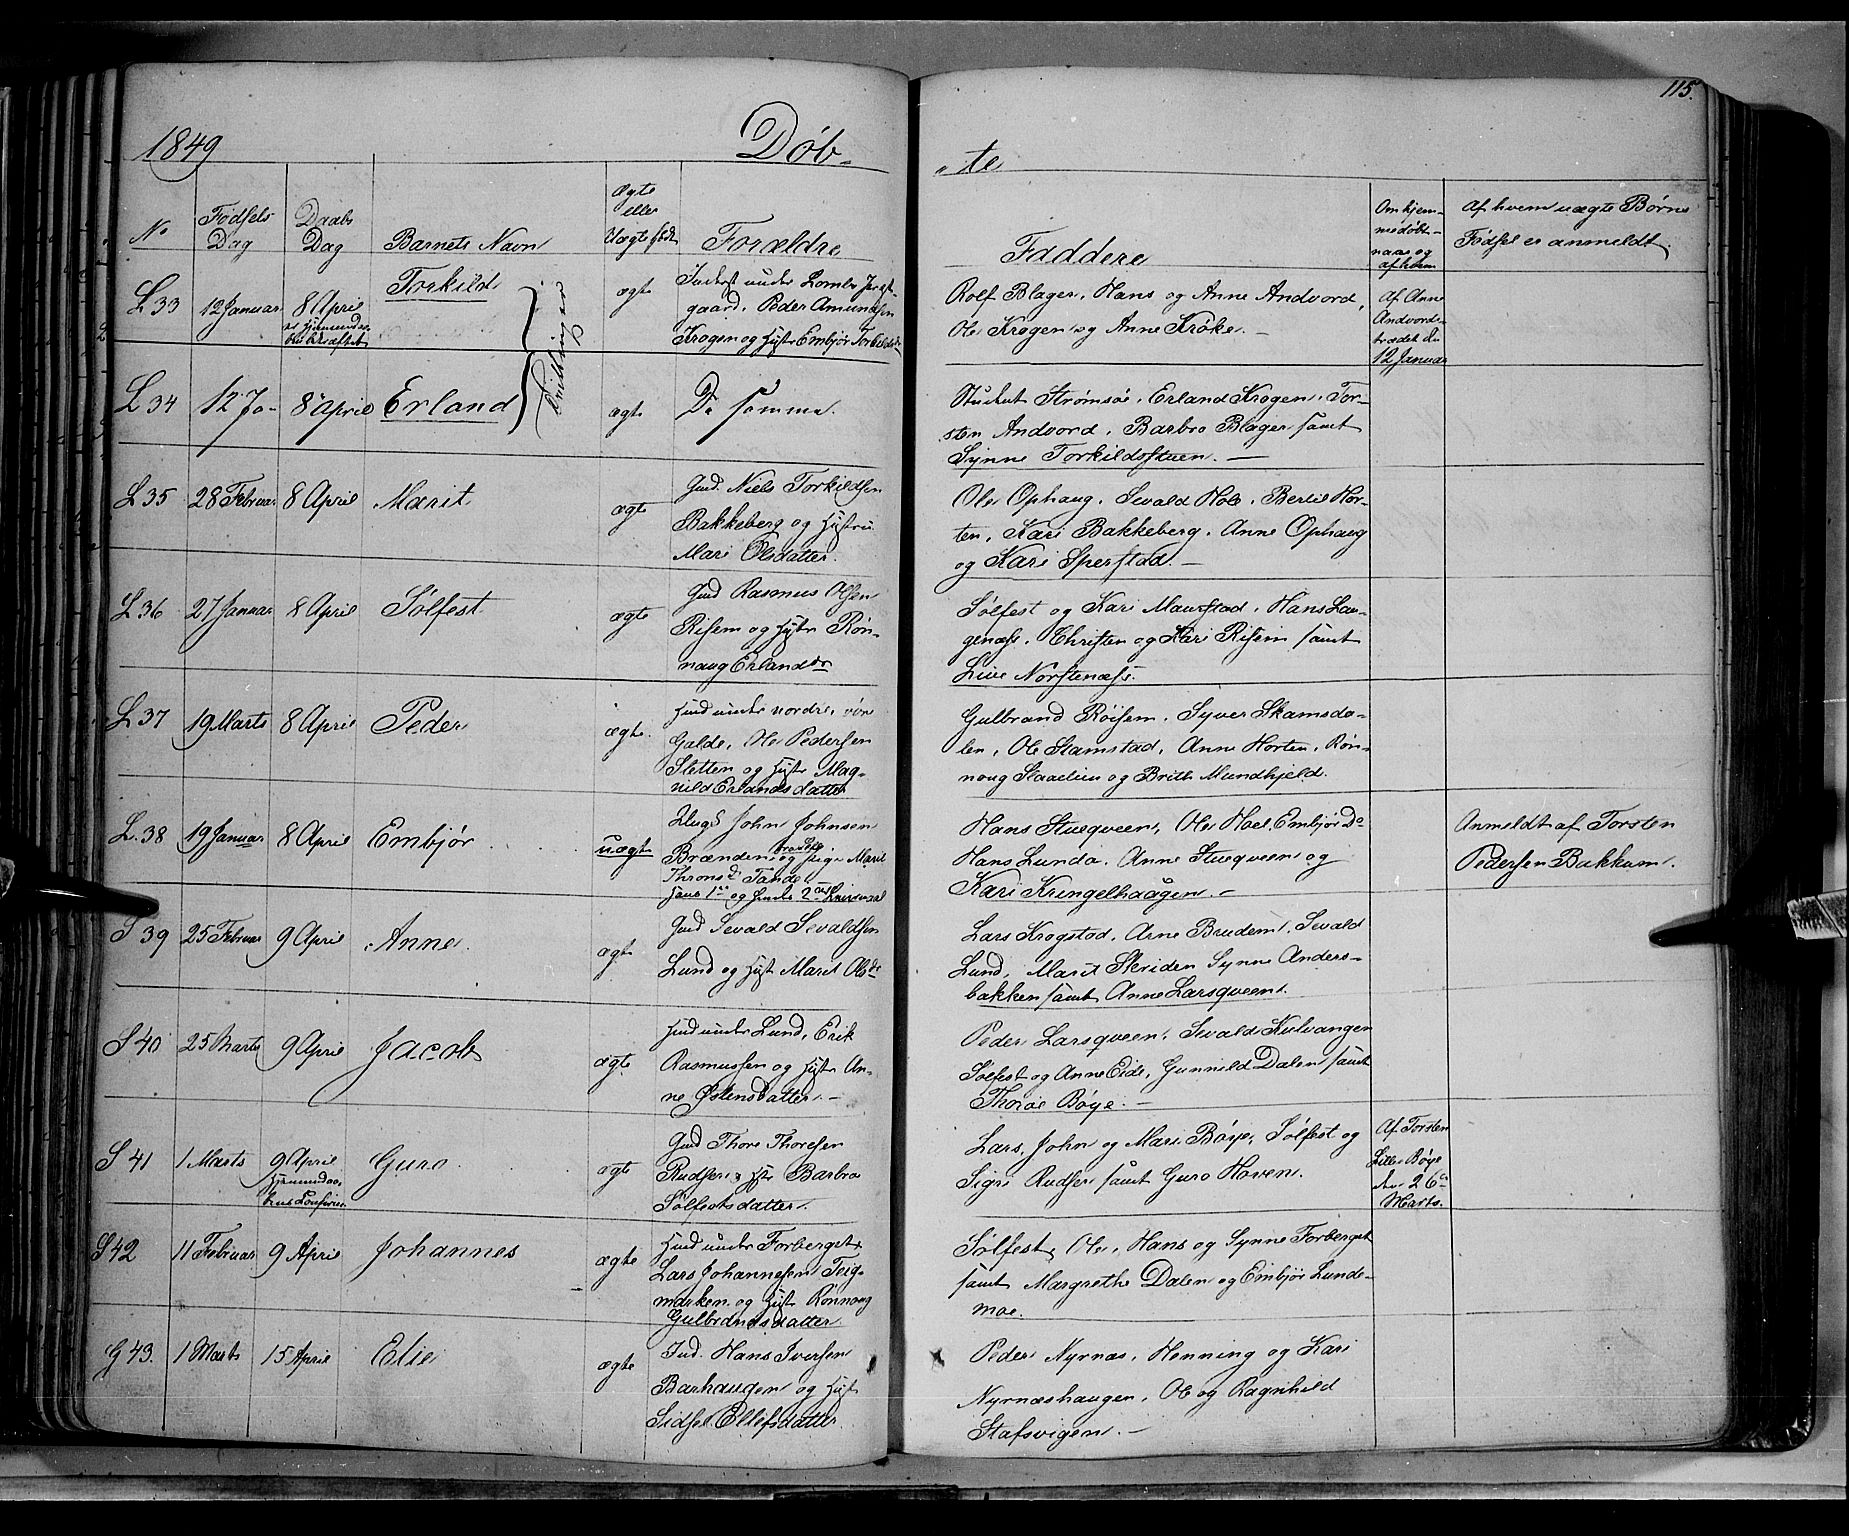 115.
1849
Døb-
"te
No
Fødsels Dag
Daabs Dag
Barnets Navn
Ægte eller Uægte født
Forældre
Faddere
Om hjemmedøbt naar og af hvem
Af hvem uægte Børns Fødsel er anmeldt.
L 33
12 Januar
8 April
Torkild
Tvillinger
ægte
Inderst under Loms
gaard. Peder Amundsen
Krogen og Hustr Embjør Torkildsd
Rolf Blager, Hans og Anne Andvord,
Ole Krogen og Anne Krøke. -
Af Anne
Andvord
den
12 Januar
L 34
12 Ja-
8 April
Erland
ægte
De samme.
Student Strømsøe, Erland Krogen, Tor-
sten Andvord, Barbro Blager samt
Synne Torkildsstuen. -
L 35
28 Februar
8 April
Marit
ægte
Gmd. Niels Torkildsen
Bakkeberg og Hustru
Mari Olsdatter.
Ole Ophaug, Sevald Hole, Bertil Hor-
ten, Kari Bakkeberg, Anne Ophaug
og Kari Sperstad. -
L 36
27 Januar
8 April
Sølfest
ægte
Gmd Rasmus Olsen
Risem og Hustr Røn-
naug Erlandsdr
Sølfest og Kari Maurstad, Hans Lan-
genæss, Christen og Kari Risem samt
Live Norstenæss.
L 37
19 Marts
8 April
Peder
ægte.
Hmd under nordre
Galde, Ole Pedersen
Sletten og Hustr Mag-
nild Erlandsdatter
Gulbrand Røisem, Syver Skamsda-
len, Ole Skamstad, Anne Horten, Røn-
noug Staalien og Britt Mundhjeld.
L. 38
19 Januar
8 April
Embjør
uægte
Ungk John Johnsen
Brænden og pige Marit
Thronsd Tande
hans 1ste og hendes 2det
Hans Stueqveen, Ole Hoel, Embjør Do
Hans Lunda, Anne Stueqveen og
Kari Kringelhaugen. -
Anmeldt af Torsten
Pedersen Bakkum.
S 39
25 Februar
9 April
Anne
ægte
Gmd Sevald Sevaldsen
Lund og Hust Marit Olsdr
Lars Krogstad, Arne Brudem, Sevald
Lund, Marit Skriden Synne Anders-
bakken samt Anne Larsqveen.
S 40
25 Marts
9 April
Jacob
ægte
Hmd under Lund, Erik
Rasmussen og Hustr An-
ne Østensdatter. -
Peder Larsqveen, Sevald Kulvangen
Sølfest og Anne Eide, Gunnild Dalen samt
Thoroe Bøye. -
S 41
1 Marts
9 April
Guro
ægte
Gmd Thore Thoresen
Rudser & Hstr Barbro
Sølfestsdatter.
Lars, John og Mari Bøye, Sølfest og
Sigri Rudser samt Guro Haven.
Af Torsten
Lille Bøye
den 26de
Marts.
S 42
11 Februar
9 April
Johannes
ægte
Hmd under Forberget
Lars Johannesen Teig-
marken og Hustr Rønnoug
Gulbrandsdatter
Sølfest, Ole, Hans og Synne Forberget
samt Margrethe Dalen og Embjør Lunde-
moe.
G 43.
1 Marts
15 April
Elie
ægte
Ind. Hans Iversen
Barhaugen og Hust
Sidsel Ellefsdatter.
Peder Nyrnæs, Henning og Kari
Nyrnæshaugen, Ole og Ragnhild
Stafsvigen. -